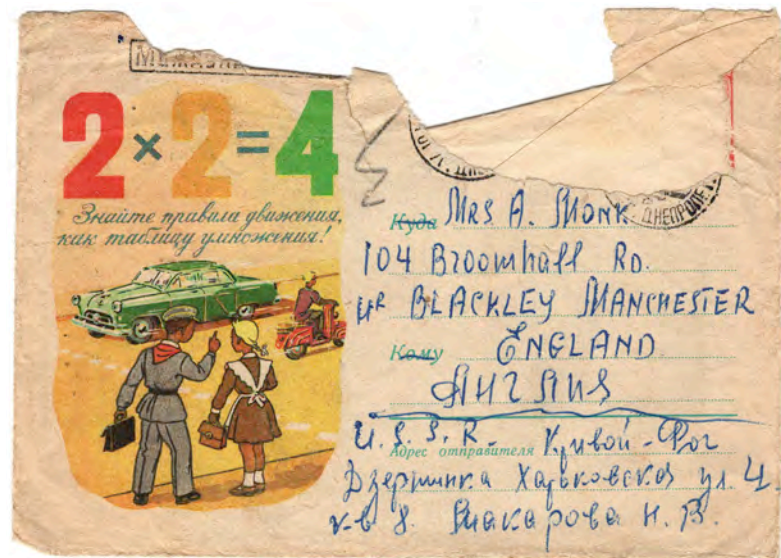 2×2=4
Знайте правила движения,
как таблицу умножения!
ДНЕПРОПЕ
Куда Mrs A. Monk
104 Broomhall Rd.
BLACKLEY MANCHESTER
Кому ENGLAND
Англия
U.S.S.R.
Адрес отправителя Кривой-Рог
Дзержинка Харьковская ул. 4.
кв 8. Н. В.